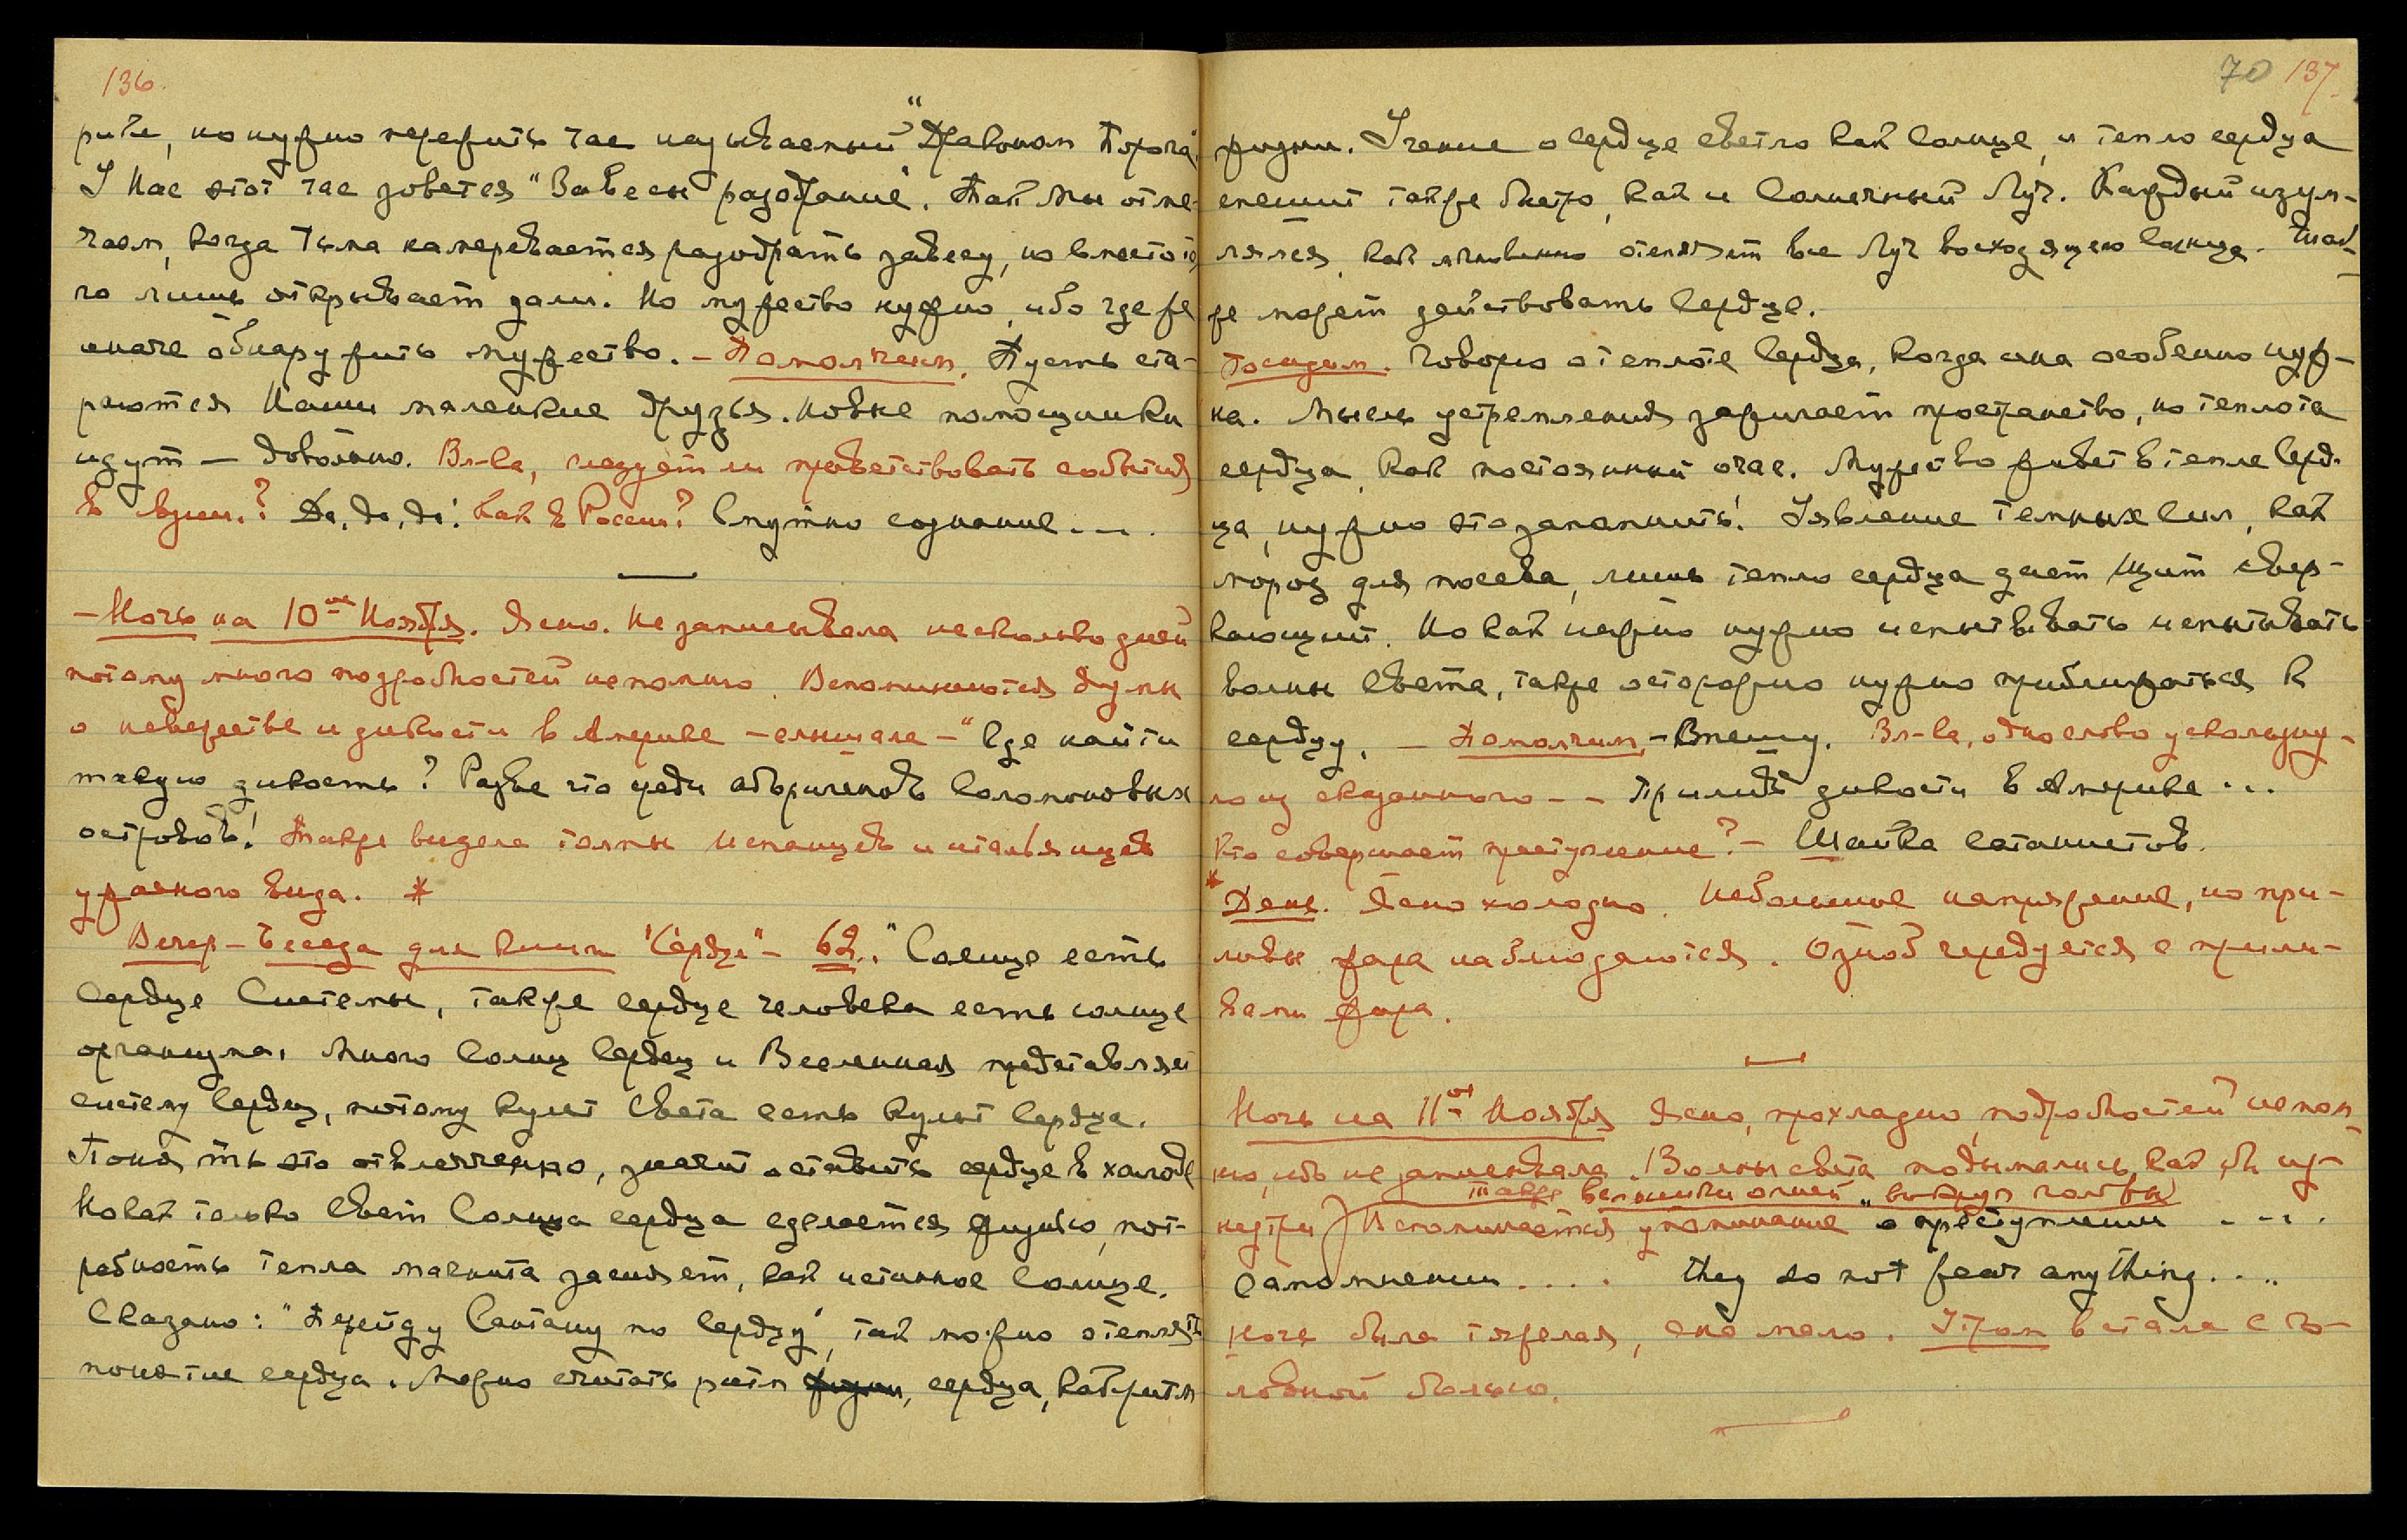 136.
рите, но нужно пережить час называемый "Драконом Порога".
У Нас этот час зовется "Завесы раздрание". Так Мы отме-
чаем, когда тьма намеревается разодрать завесу, но вместо то
го лишь открывает дали. Но мужество нужно, ибо где же
иначе обнаружить мужество. – Помолчим. Пусть ста-
раются Наши маленькие друзья. Новые помощники
идут – довольно. Вл-ка, следует ли приветствовать события
в ? Да, да, да! Как в России? Смутно сознание ...
– Ночь на 10ое Ноября. Ясно. Не записывала несколько дней
потому много подробностей не помню. Вспоминаются думы
о невежестве и дикости в Америке – слышала – "Где найти
такую дикость? Разве что среди аборигенов Соломоновых
островов! Также видела толпы Испанцев и итальянцев
ужасного вида. *
Вечер – Беседа для книги "Сердце" – 62. "Солнце есть
Сердце Системы, также сердце человека есть солнце
организма. Много Солнц Сердец и Вселенная представляет
систему Сердец, потому культ Света есть культ Сердца.
Понять это отвлеченно, значит оставить сердце в холоде
Но как только Свет Солнца сердца сделается жизнью, пот-
ребность тепла магнита засияет, как истинное Солнце.
Сказано: "Перейду Сантану по Сердцу", так можно отеплять
понятие сердца. Можно считать ритм жизни, сердца, как ритм
70 137.
жизни. Учение о Сердце светло как Солнце, и тепло сердца
спешит также быстро, как и Солнечный Луч. Каждый изум-
лялся, как мгновенно отепляет все Луч восходящего Солнца. Так
же может действовать Сердце.
Посидим. Говорю о теплоте Сердца, когда она особенно нуж-
на. Мысль устремления зажигает пространство, но теплота
сердца, как постоянный очаг. Мужество живет в тепле Серд-
ца, нужно это запомнить! Явление темных Сил, как
мороз для посева, лишь тепло сердца дает Щит свер-
кающий. Но как нежно нужно испытывать испытывать
волны Света, также осторожно нужно приближаться к
сердцу. – Помолчим. – Внешу. Вл-ка, одно слово ускользну-
ло из сказанного – – Прилив дикости в Америке ...
Кто совершает преступление? – Шайка сатанистов.
* День. Ясно холодно. Небольшое напряжение, но при-
ливы жара наблюдаются. Озноб чередуется с прили-
вами жара.
Ночь на 11ое Ноября Ясно, прохладно, подробностей не пом
ню, ибо не записывала. Волны света подымались, как бы из-
также вспышки огней вокруг головы
нутри) Вспоминается упоминание о преступлении ....
самомнении .... they do not fear anything ....
Ночь была тяжелая, сна мало. Утром встала с го-
ловной болью.